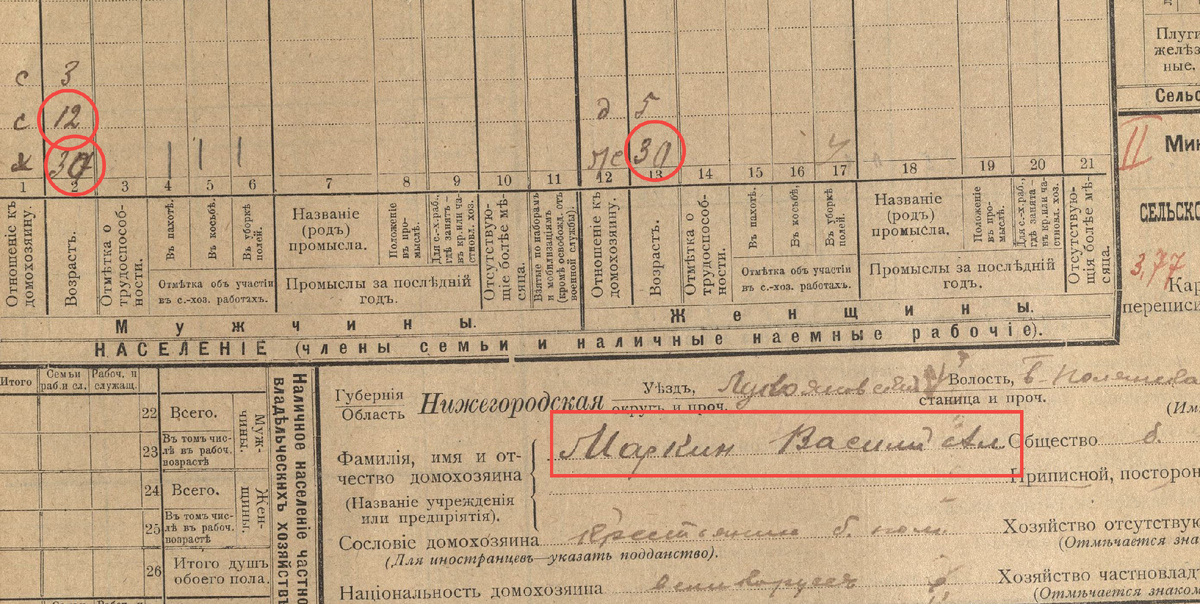 Плуги
желѣз
ные.
с 3
Сельс
с 12 д 5
х 30 жс 30
II
Мин
1 2 3 4 5 6 7 8 9 10 11 12 13 14 15 16 17 18 19 20 21
Отношеніе къ домохозяину.
Возрастъ.
Отмѣтка о трудоспособности.
Въ пахотѣ.
Въ косьбѣ.
Въ уборкѣ полей.
Отмѣтка объ участіи
въ с.-хоз. работахъ.
Названіе
(родъ)
промысла.
Положеніе въ промыслѣ.
Для с.-х-раб., гдѣ занятъ – въ кр. или частновл. хоз.
Промыслы за послѣдній
годъ.
Отсутствующіе болѣе мѣсяца.
Взятые по наборамъ и мобилизаціямъ (кромѣ освобожд. отъ военной службы).
Отношеніе къ домохозяину.
Возрастъ.
Отмѣтка о трудоспособности.
Въ пахотѣ.
Въ косьбѣ.
Въ уборкѣ полей.
Отмѣтка объ участіи
въ с.-хоз. работахъ.
Названіе
(родъ)
промысла.
Положеніе въ промыслѣ.
Для с.-х-раб., гдѣ занята – въ кр. или частновл. хоз.
Промыслы за послѣдній
годъ.
Отсутствующія болѣе мѣсяца.
СЕЛЬСКО
377
Кар
переписи
Мужчины.
Женщины.
НАСЕЛЕНІЕ (члены семьи и наличные наемные рабочіе).
Итого
Семьи раб. и сл.
Рабоч. и служащ.
22 Всего.
23 Въ томъ числѣ въ рабоч. возрастѣ
Мужчины.
24 Всего.
25 Въ томъ числѣ въ рабоч. возрастѣ
Женщины.
26 Итого душъ
обоего пола.
Наличное населеніе частно
владѣльческихъ хозяйствъ
Губернія
Область Нижегородская
Уѣздъ, Лукояновскій Волость,
округъ и проч. станица и проч.
(Им
Фамилія, имя и от-
чество домохозяина
(Названіе учрежденія
или предпріятія).
Маркин Василий Ал
Общество б.
Приписной, посторон
Сословіе домохозяина Крестьянин б. пом.
(Для иностранцевъ—указать подданство).
Хозяйство отсутствую
(Отмѣчается зна
Національность домохозяина великоруссъ
Хозяйство частновлад
(Отмѣчается знако